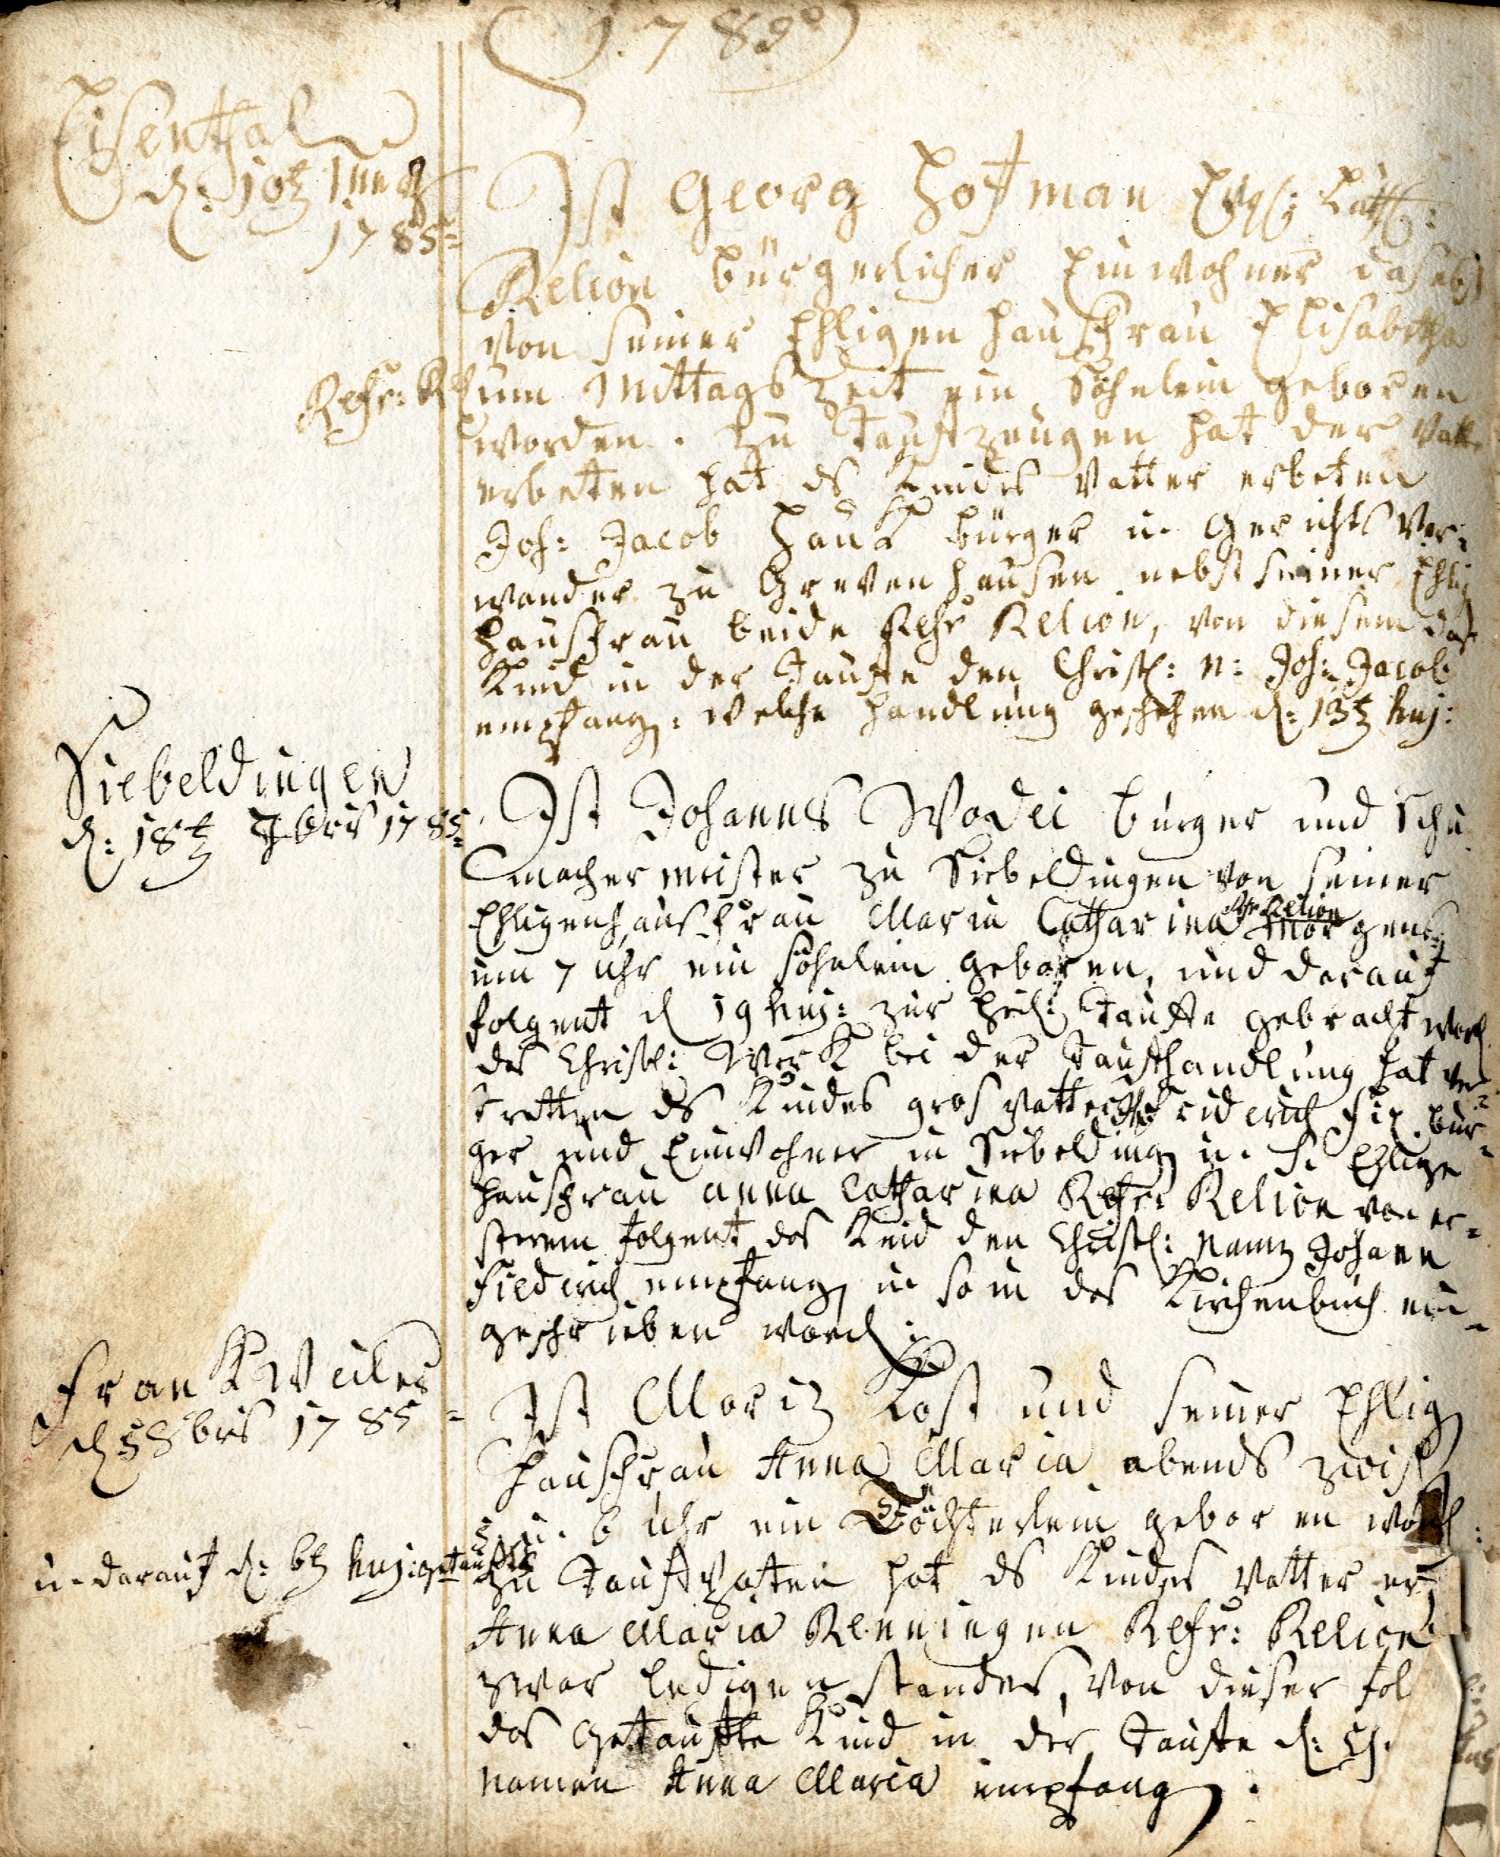 1785
Eisenthal
d: 10t Mertz
1785
Ist Georg Hofman Evgl: Luth:
Relion bürgerlicher Einwohner daselbst
von seiner Ehligen Hausfrau Elisabetha
Refr: Rel um Mittags Zeit ein Söhnlein geboren
worden. Zu Taufzeugen hat der Vatt
erbetten hat ds Kindes Vatter erbeten
Joh: Jacob Hauck bürger u. Gerichts Ver-
wander zu Grevenhausen nebst seiner Ehlig
Hausfrau beide Refr Relion, von diesem das
Kind in der Tauffe den Christl: N: Joh: Jacob
empfang: welche Handlung geschehen d: 13t huj:
Siebeldingen
d: 18t 7bris 1785
Ist Johannes Wadei burger und Schu
macher meister zu Siebeldingen von seiner
Ehligenhausfrau Maria Catharina Rfr Relion morgens
um 7 uhr ein söhnlein geboren, und darauf
folgent d 19 huj: zur Heil: Tauffe gebracht word
des Christl: Werk bei der Taufhandlung hat ver-
tretten ds Kindes gros vatter Friderich Fix bur-
ger und Einwohner in Siebelding u. s. Ehlige
Hausfrau anna Catharina Refr: Relion von er-
sterem folgent das Kind den Christl: Namen Johann
Friedrich empfang u so in das Kirchenbuch ein-
geschrieben word:
Frankweiler
d 5 8bris 1785
Ist Moritz Kost und seiner Ehlig
Hausfrau Anna Maria abends zwisch
5 u. 6 uhr ein Töchterlein geboren word:
u. darauf d: 6t huj: getaufft
Zu Taufpatten hat ds Kindes Vatter er
Anna Maria Renningen Refr: Relion
zwar ledigen standes, von dieser fol
das getaufte Kind in der Tauffe d: Ch.
namen Anna Maria empfang.